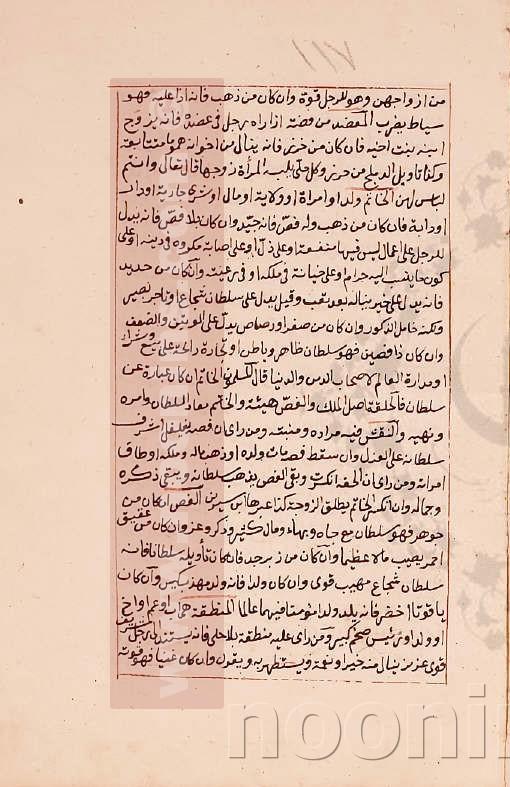 من ازواجهن وهو للرجل قوة وان كان من ذهب فانه اذا عليه فهو
سياط يضرب المعضد من فضة اذا راه رجل في عضده فانه يزوج
ابنته بنت اخيه فان كان من خرز فانه ينال من اخوانه هموما متتابعة
وكذا تاويل الدملج من خرز وكل حلى يلبسه المرأة زوجها قال تعالى وانتم
لباس لهن الخاتم ولد او امراة او ولاية او مال او شرى جارية او دار
او دابة فان كان من ذهب وله فص فانه جيد وان كان بلا فص فانه يدل
للرجل على اعمال ليس فيها منفعة او على ذل او على اصابة مكروه في دينه او على
كون ما ينسب اليه حرام وعلى خيانة في ملكه او في رعيته وان كان من حديد
فانه يدل على خير يناله بعد تعب وقيل يدل على سلطان شجاع او تاجر بصير
ولكنه خامل الذكور وان كان من صفر او رصاص يدل على الوهن والضعف
وان كان ذا فصين فهو سلطان ظاهر وباطن او تجارة رابحة على بيع وشراء
او مداراة العالم لاصحاب الدين والدنيا قال المسلمون الخاتم ان كان عبارة عن
سلطان فالحلقة اصل الملك والفص هيئته والختم معاد السلطان وامره
ونهيه والنقش فيه مراده ومنيته ومن راى ان فصه تقلقل اشرف
سلطانه على العزل وان سقط فصه مات ولده او ذهب ماله وملكه او طلق
امراته ومن راى ان الحلقة انكسرت وبقى الفص يذهب سلطانه ويبقى ذكره
وجماله وان انكسر الخاتم يطلق الزوجة كذا عبرها ابن سيرين الفص ان كان من
جوهر فهو سلطان مع جاه وبهاء ومال كثير وذكر وعز وان كان من عقيق
احمر يصيب مالا عظيما وان كان من زبرجد فان كان تأويله سلطانا فانه
سلطان شجاع مهيب قوى وان كان ولدا فانه ولد مهذب كيس وان كان
ياقوتا اخضر فانه يلد ولدا مؤمنا فهيما عالما المنطقة هى اب او عم او اخ
او ولد او رئيس ضخم كبير ومن راى عليه منطقة بلا حلى فانه يستند الى رجل شريف
قوى عزيز ينال منه خيرا ونعمة ويستظهر به ويقول وان كان غنيا فهو قوته
noonin